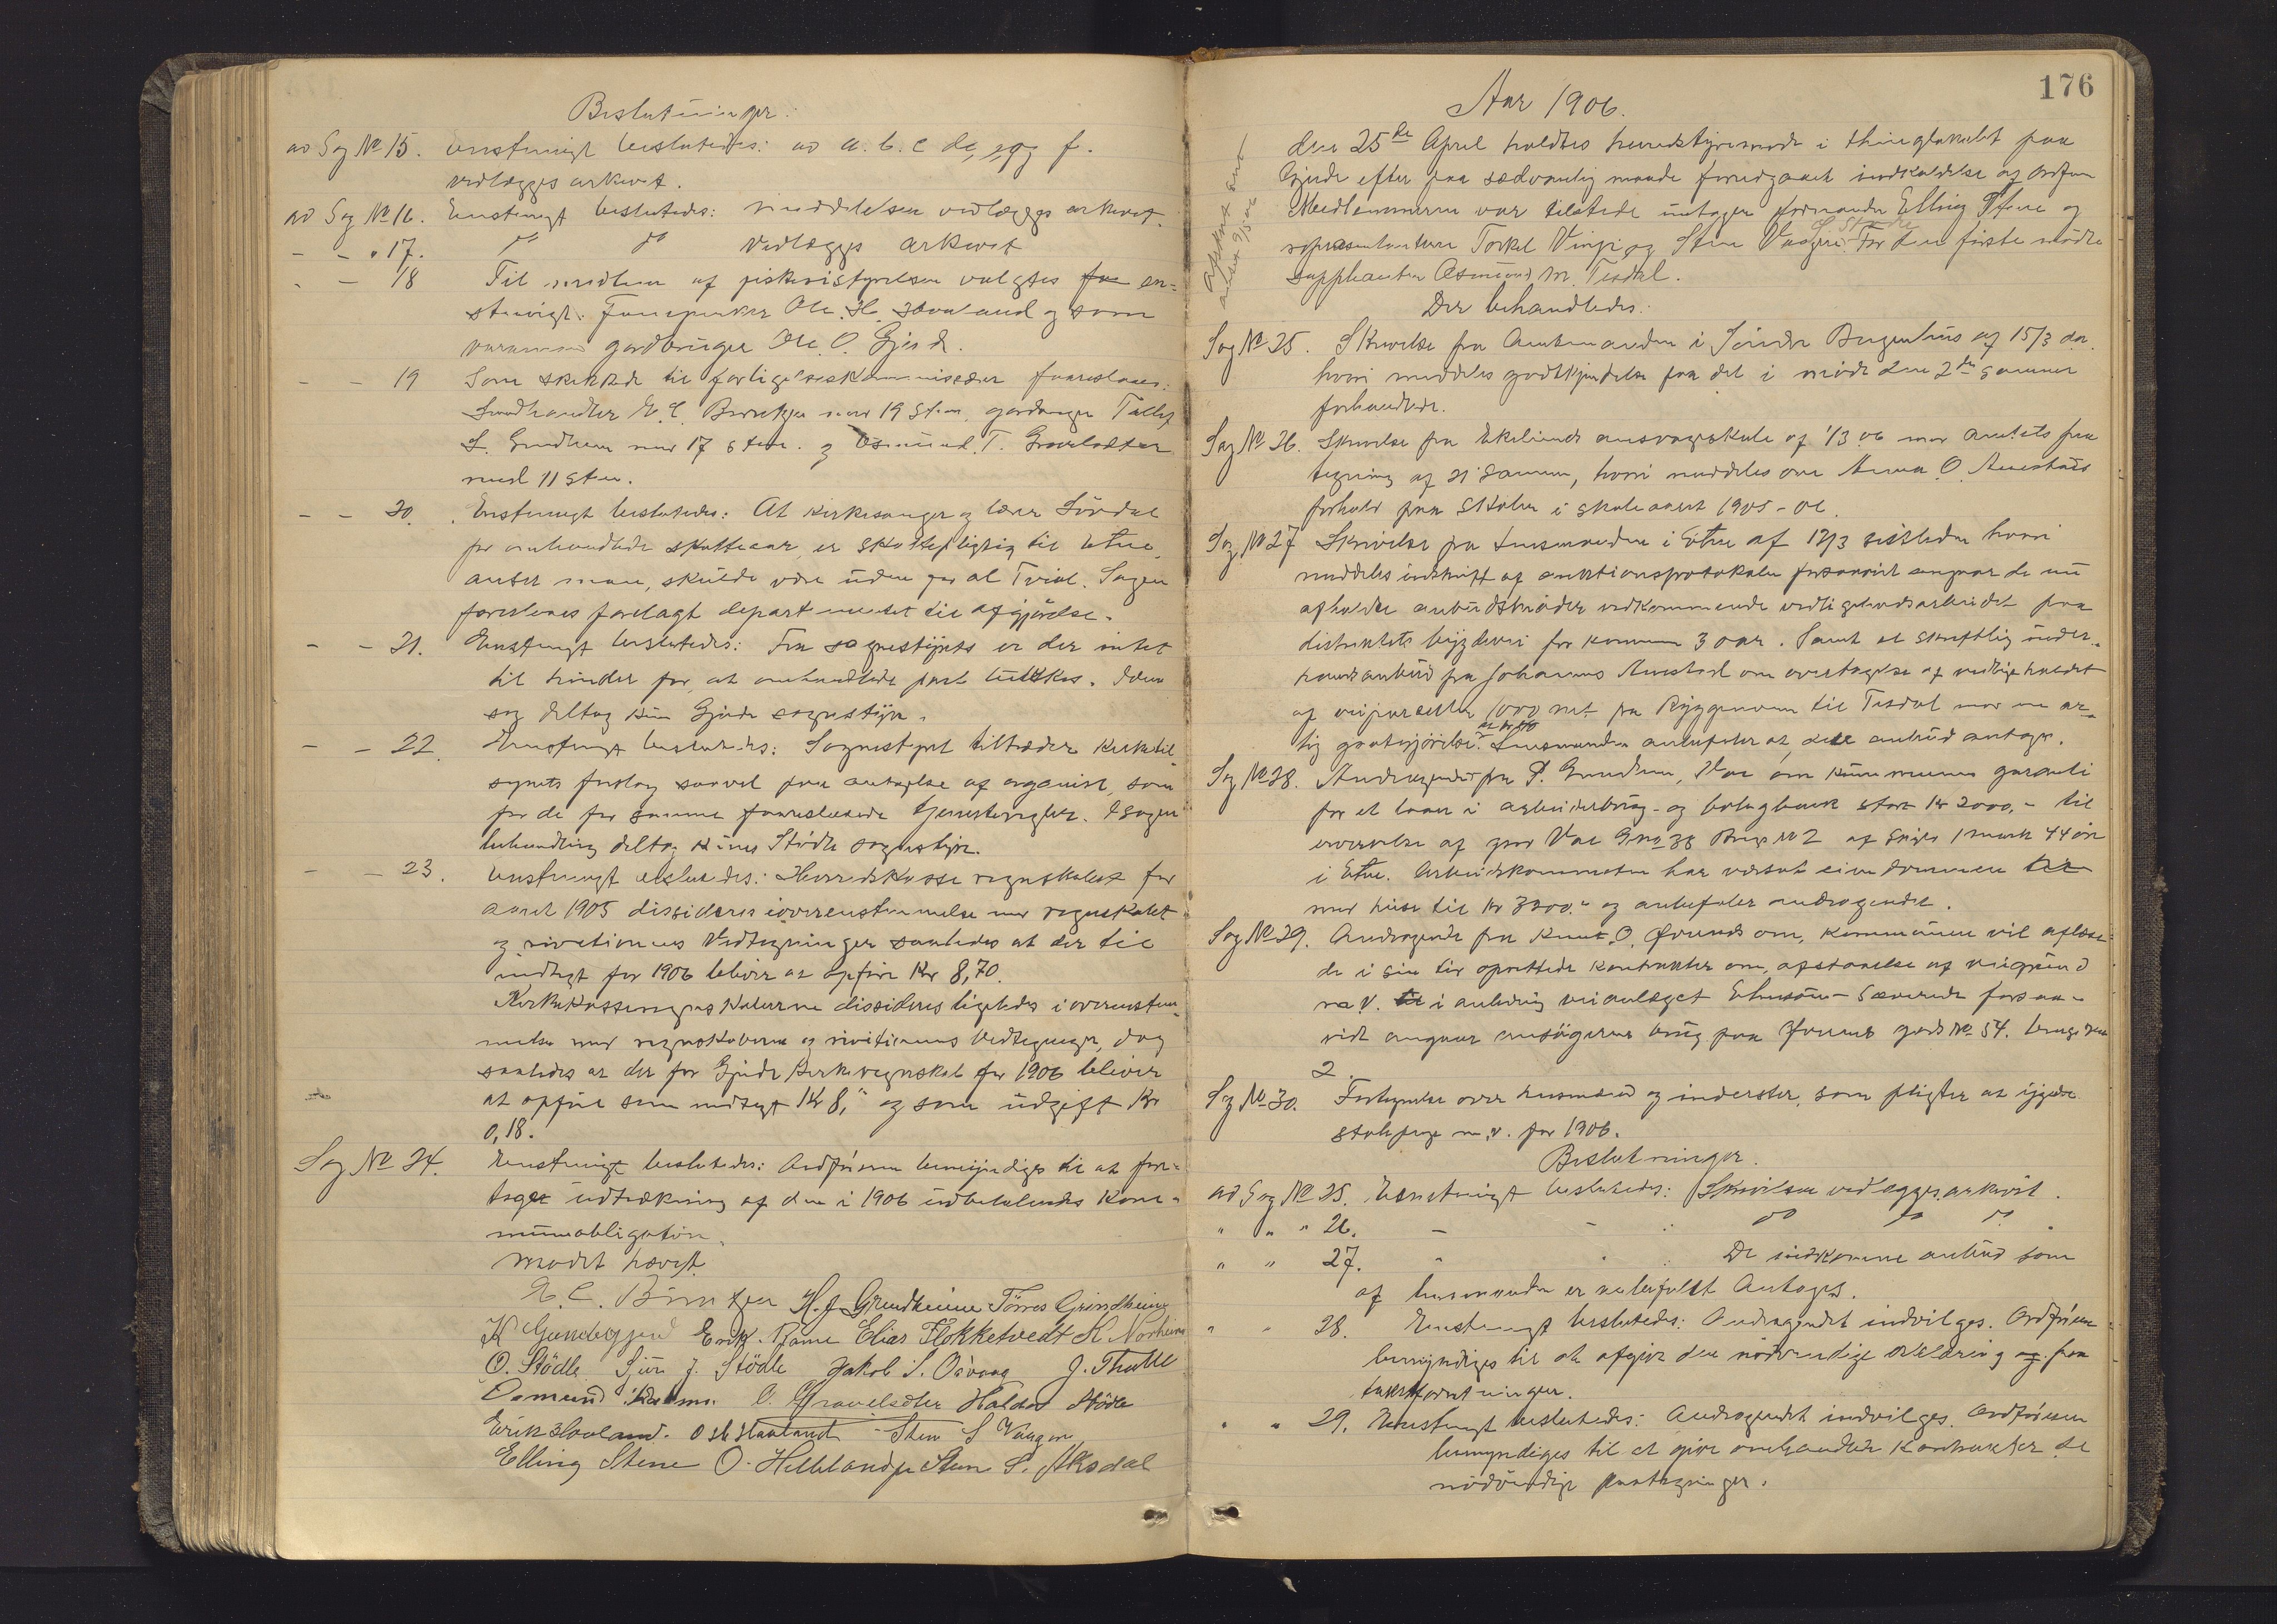 Beslutninger:
ad Sag № 15. Enstemigt besluttedes: ad a. b. c de, og f.
vedlægges arkivet.
ad Sag № 16. Enstemigt besluttedes: meddelelsen vedlægges arkivet.
- - " 17. do do vedlægges arkivet
- - 18 Til medlem af fiskeristyrelsen valgtes en-
stemigt: Ole H. og som
varamand gardbruger Ole O. Gjerde.
- - 19 Som til forligelseskommissær foreslaaes:
Landhandler E. C. med 19 stem. gardbruger
S. Grindheim med 17 stem. og Osmund T. Gravelsæter
med 11 stem.
- - 20. Enstemigt besluttedes: At kirkesanger og lærer Sørdal
for omhandlede skatteaar er skattepligtig til Etne,
anser man, skulde være uden for al Tvivl. Sagen
foreslaaes forelagt departementet til afgjørelse.
- - 21. Enstemigt besluttedes: Fra sognestyrets er der intet
til hinder for, at omhandlede post. Idenne
sag deltog kun Gjerde sognestyre.
- - 22. Enstemigt besluttedes: Sognestyret tiltræder kirketil-
synets forslag saavel paa antagelse af organist, som
for de for samme foreslaaede tjenesteregler. I sagens
behandling deltog kun Stødle sognestyre.
- - 23. Enstemigt besluttedes: Herredskasseregnskabet for
aaret 1905 dissideres i overenstemmelse med regnskabet
og revisionens vedtegninger saaledes at der til
indtægt for 1906 bliver at opføre Kr 8,70.
Kirkekasseregnskaberne dissideres ligeledes i overenstem-
melse med regnskaberne og revisionens vedtegninger, dog
saaledes at der for Gjerde kirkeregnskab for 1906 bliver
at opføre som indtægt Kr 8," og som udgift Kr
0,18.
Sag № 24. Enstemigt besluttedes: Ordføreren bemyndiges til at fore-
tage udtrækning af den i 1906 udbetalendes kom-
muneobligation.
Mødet hævet.
E. C. H. J. Grindheim Tørres Grindheim
K Erik Rame Elias Flokketvedt H. Norheim
O. Stødle Sjur J. Stødle Jakob S. J. Thulle
Osmund O. Gravelsæter Haldor Stødle
Erik Haaland. Sten S Vaagen
Elling Stene O. Helleland Sten S. Aksdal
176
Aar 1906.
den 25de April holdtes herredstyremøde i thinglokalet paa
Gjerde efter paa sædvanlig maade foregaaet indkaldelse af ordføreren
Medlemmerne var tilstede untagen formanden Elling Stene og
representanterne Torkel Vinje og Sten Vaagen. For den første mødte
supplianten Osmund M. Tesdal.
Der behandledes:
Sag № 25. Skrivelse fra Amtmanden i Søndre Bergenhus af 15/3 d.a.
hvori meddeles godtkjendelse paa det i møde den 2den samme
forhandlede.
Sag № 26. Skrivelse fra Ekelunds af 1/3 06 med amtets paa
tegning af 21 samme, hvori meddeles om Anna O.
forhold paa skolen i skoleaaret 1905-06.
Sag № 27 Skrivelse fra Lensmanden i Etne af 12/3 sidstleden hvori
meddeles udskrift af auktionsprotokolen forsaavidt angaar de nu
afholdte anbudsmøder vedkommende vedligeholdsarbeidet paa
distriktets bygdevei for kommende 3 aar. Samt et skriftlig under-
haandsanbud fra Johannes om overtagelse af vedligeholdet
af veiparsellen 1000 met. fra Ryggen til Tesdal mod en aar-
lig godtgjørelse. Lensmanden anbefaler at dette anbud antages.
Sag № 28. Andragende fra P. Grindheim, Vae om kommunens garanti
for et laan i arbeiderbrug- og boligbank stort kr 2000,- til
erværvelse af gard Vae Gno 38 Brugs № 2 af skyld 1 mark 44 øre
i Etne. Arbeidskommiteen har værdsat eiendommen
med huse til kr 3000." og anbefaler andragendet.
Sag № 29. Andragende fra Knut O. om, kommunen vil aflæse
de i sin tid oprettede kontrakter om, afstaaelse af veigrund
m.v. i anledning veianlæget forsaa-
vidt angaar ansøgerens brug paa gards № 54. brugs
2.
Sag № 30. Fortegnelse over husmænd og inderster, som pligter at
m.v. for 1906.
Beslutninger.
ad Sag № 25. Enstemigt besluttedes: Skrivelsen vedlægges arkivet.
" " " 26. - - : do do do.
" " 27. " " : De indkomne anbud som
af lensmanden er anbefalet antages.
" " 28. Enstemigt besluttedes: Andragendet indvilges. Ordføreren
bemyndiges til at afgive den nødvendige erklæring paa
" " 29. Enstemigt besluttedes: Andragendet indvilges. Ordføreren
bemyndiges til at give omhandlede kontrakter de
nødvendige paategninger.